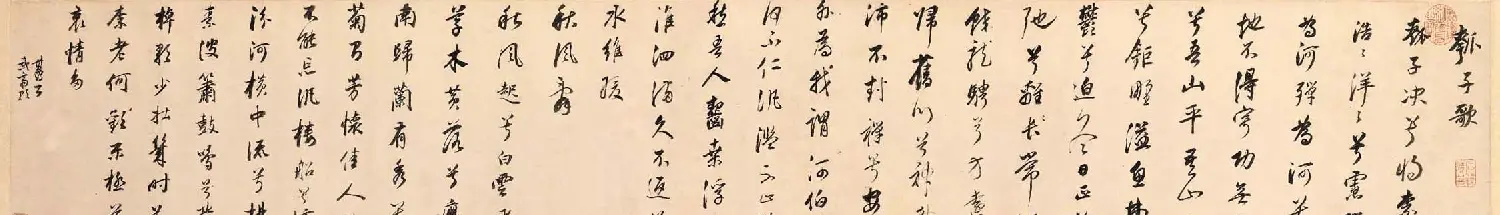 瓠子歌
瓠子决兮將奈
浩々洋々兮慮
為河殫為河兮
地不得寧功無
兮吾山平吾山
兮鉅野溢魚
鬱兮迫冬日正
弛兮離常
蛟龍騁兮方遠
歸舊川兮神哉
沛不封禪兮安
外為我謂河伯
何不仁泛濫不止
愁吾人齧桑浮
淮泗滿久不返
水維緩
秋風辭
秋風起兮白雲
草木黄落兮雁
南歸蘭有秀兮
菊有芳懷佳人
不能忘泛樓船兮
汾河橫中流兮揚
素波簫鼓鳴兮發
棹歌少壯幾時
奈老何歡樂極兮
哀情多